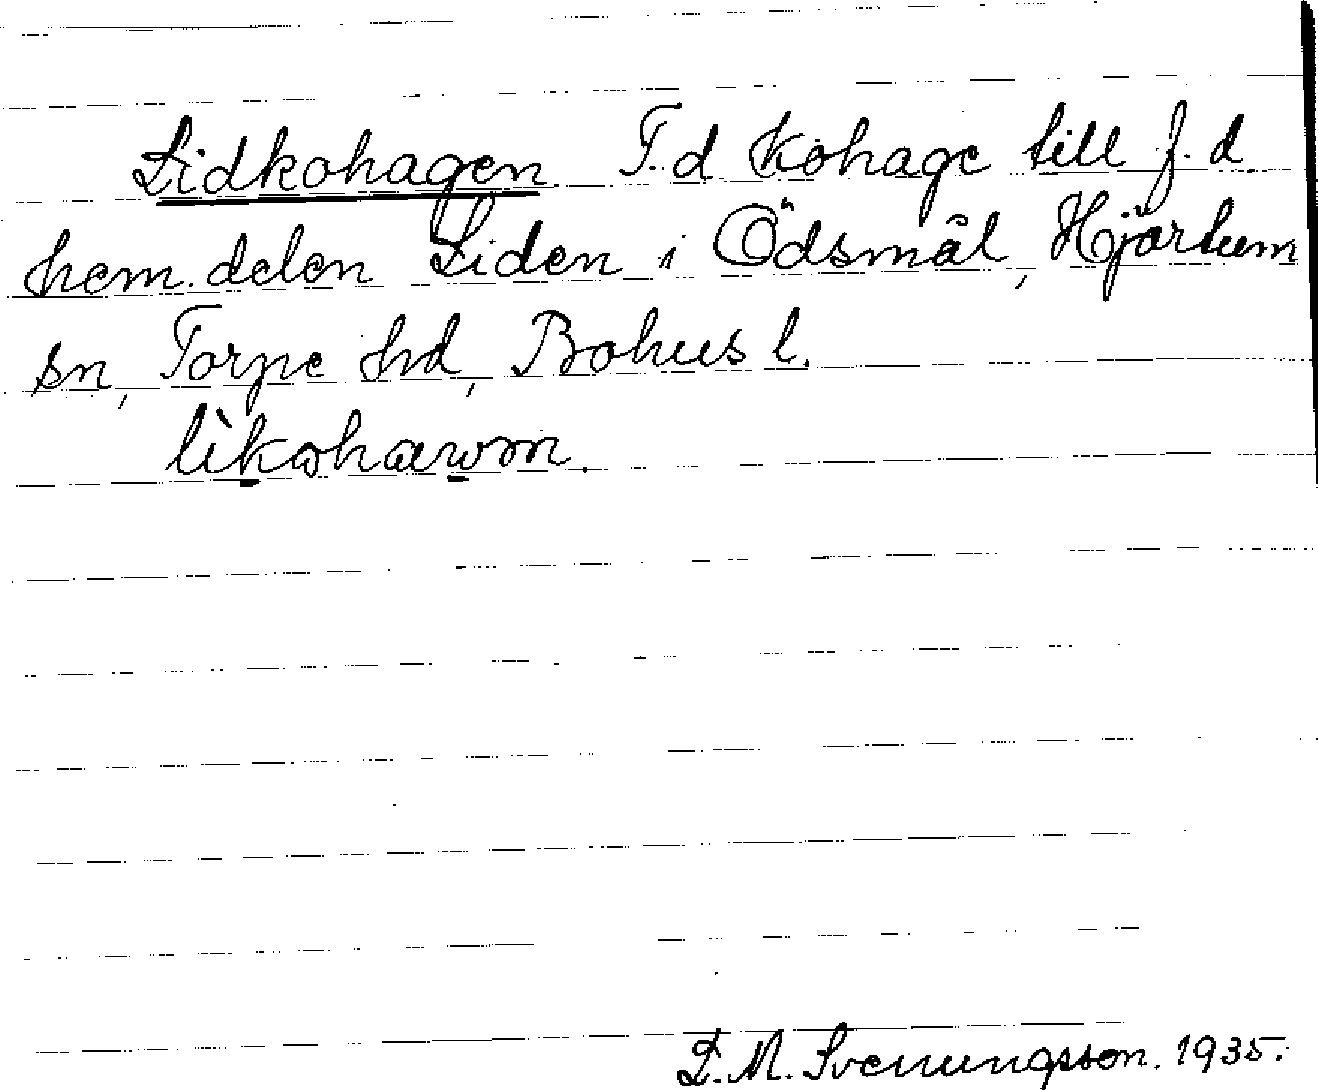 Lidkohagen F.d kohage till f.d.
hem.delen Liden i Ödsmål, Hjärtum
sn, Torpe hd, Bohus l.
lìkohawon.
L.M. Svenungsson. 1935.